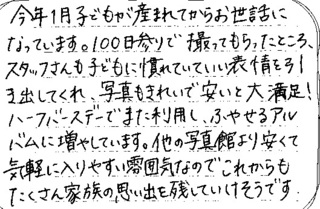 今年1月子どもが産まれてからお世話に
なっています。100日参りで撮ってもらったところ、
スタッフさんも子どもに慣れていていい表情を引
き出してくれ、写真もきれいで安いと大満足!
ハーフバースデーでまた利用し、ふやせるアル
バムに増やしています。他の写真館より安くて
気軽に入りやすい雰囲気なのでこれからも
たくさん家族の思い出を残していけそうです。